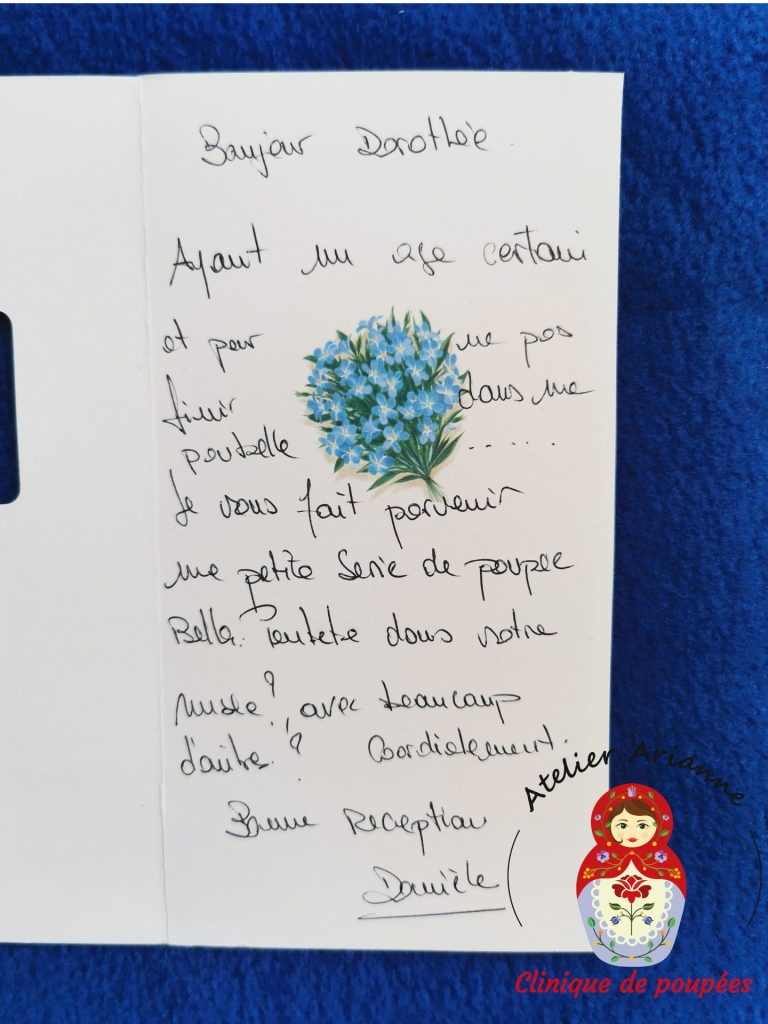 Bonjour Dorothée.
Ayant un age certain
et pour ne pas
finir dans une
poubelle ......
Je vous fait parvenir
une petite Serie de poupee
Bella. Peutete dans votre
musée?, avec beaucoup
d'autres.? Cordialement.
Bonne Reception
Danièle
Atelier Arianne
Clinique de poupées